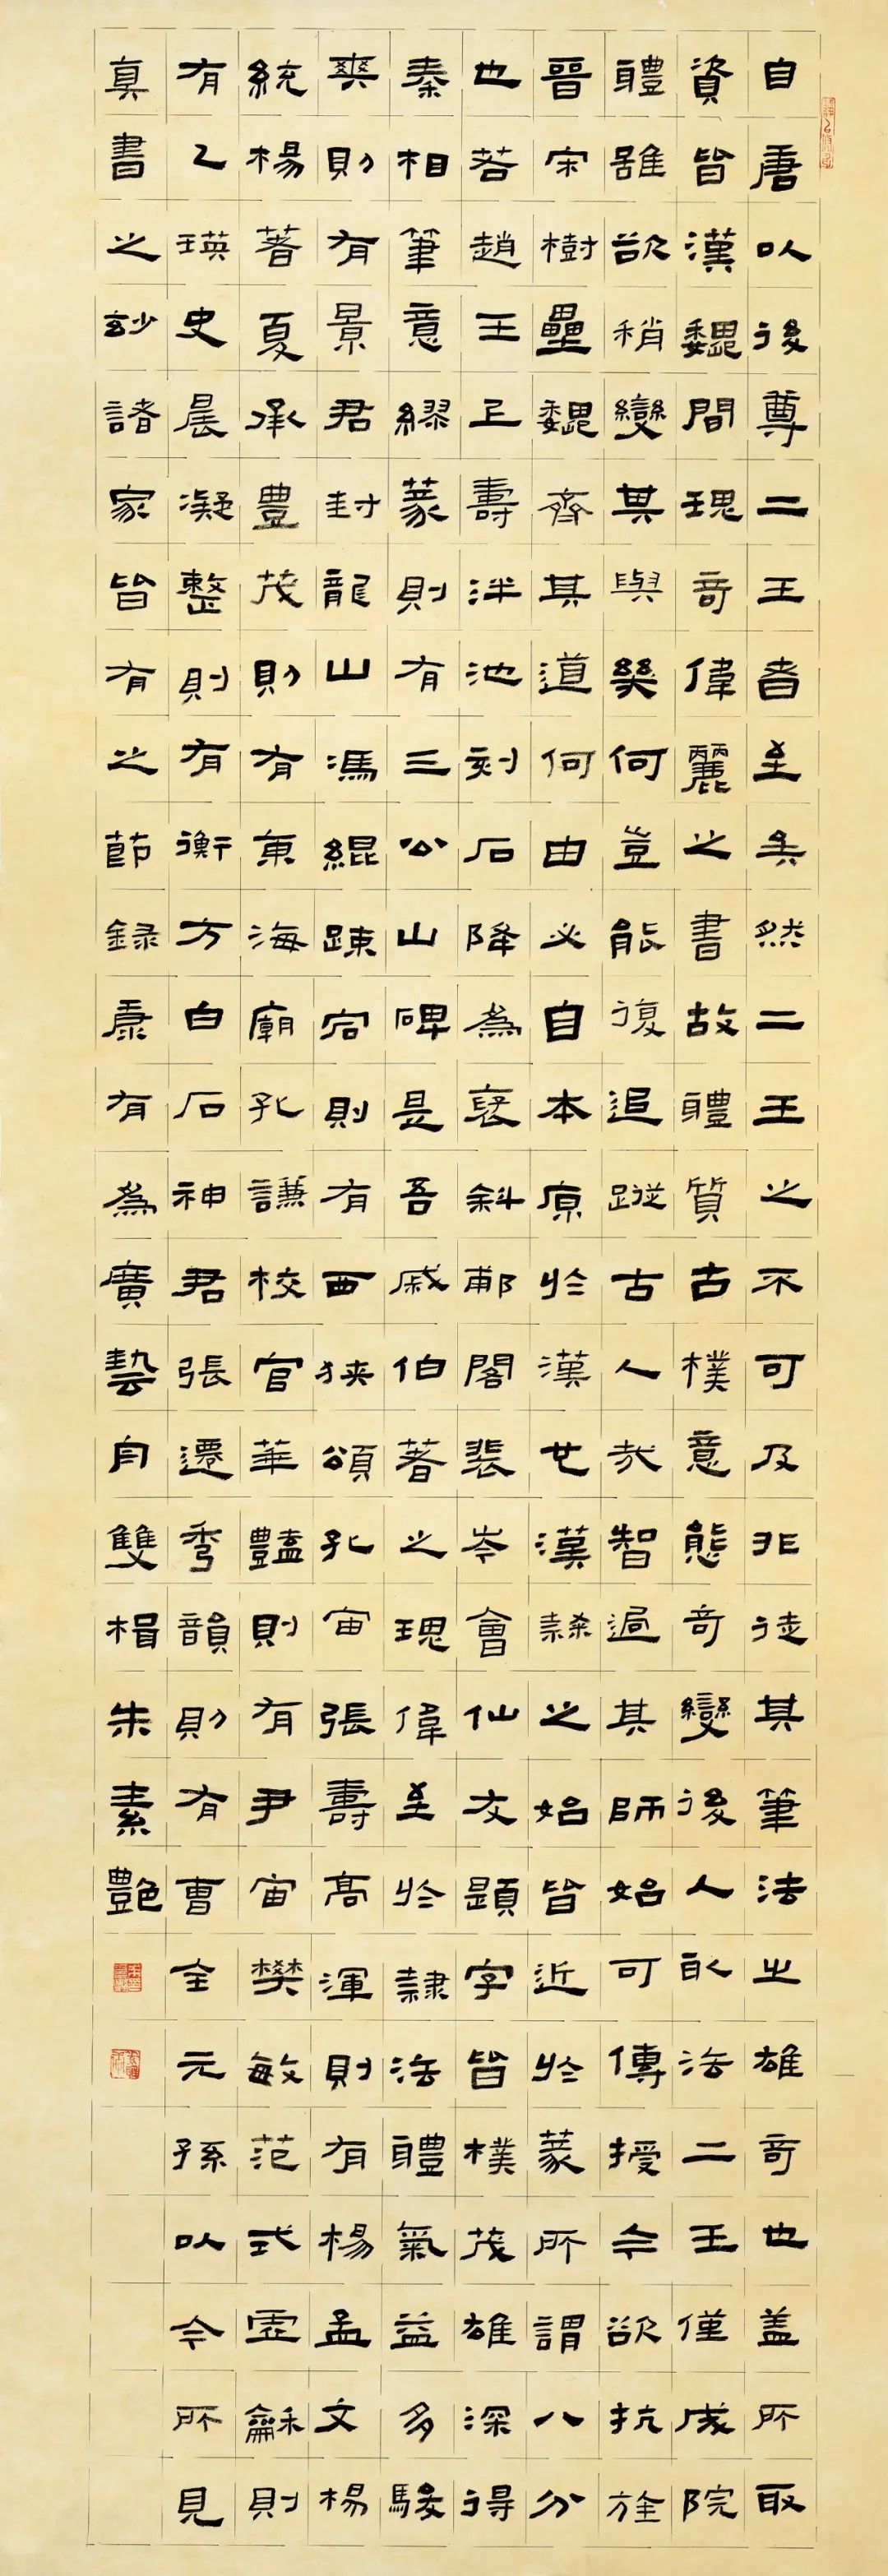 自唐以後尊二王者至矣然二王之不可及非徒其筆法之雄奇也盖所取
資皆漢魏間瑰奇偉麗之書故體質古樸意態奇變後人取法二王僅成院
體雖欲稍變其與幾何豈能復追蹤古人哉智過其師始可傳授今欲抗旌
晉宋樹壘魏齊其道何由必自本原於漢世漢隸之始皆近於篆所謂八分
也若趙王正壽泮池刻石降為褒斜郙閣裴岑會仙友題字皆樸茂雄深得
秦相筆意繆篆則有三公山碑是吾戚伯著之瑰偉至於隸法體氣益多駿
爽則有景君封龍山馮緄疎宕則有西狹頌孔宙張壽高渾則有楊孟文楊
統楊著夏承豊茂則有東海廟孔謙校官華豔則有尹宙樊敏范式虛龢則
有乙瑛史晨凝整則有衡方白石神君張遷秀韻則有曹全元孫以今所見
真書之玅諸家皆有之節録康有為廣藝舟雙楫朱素艷